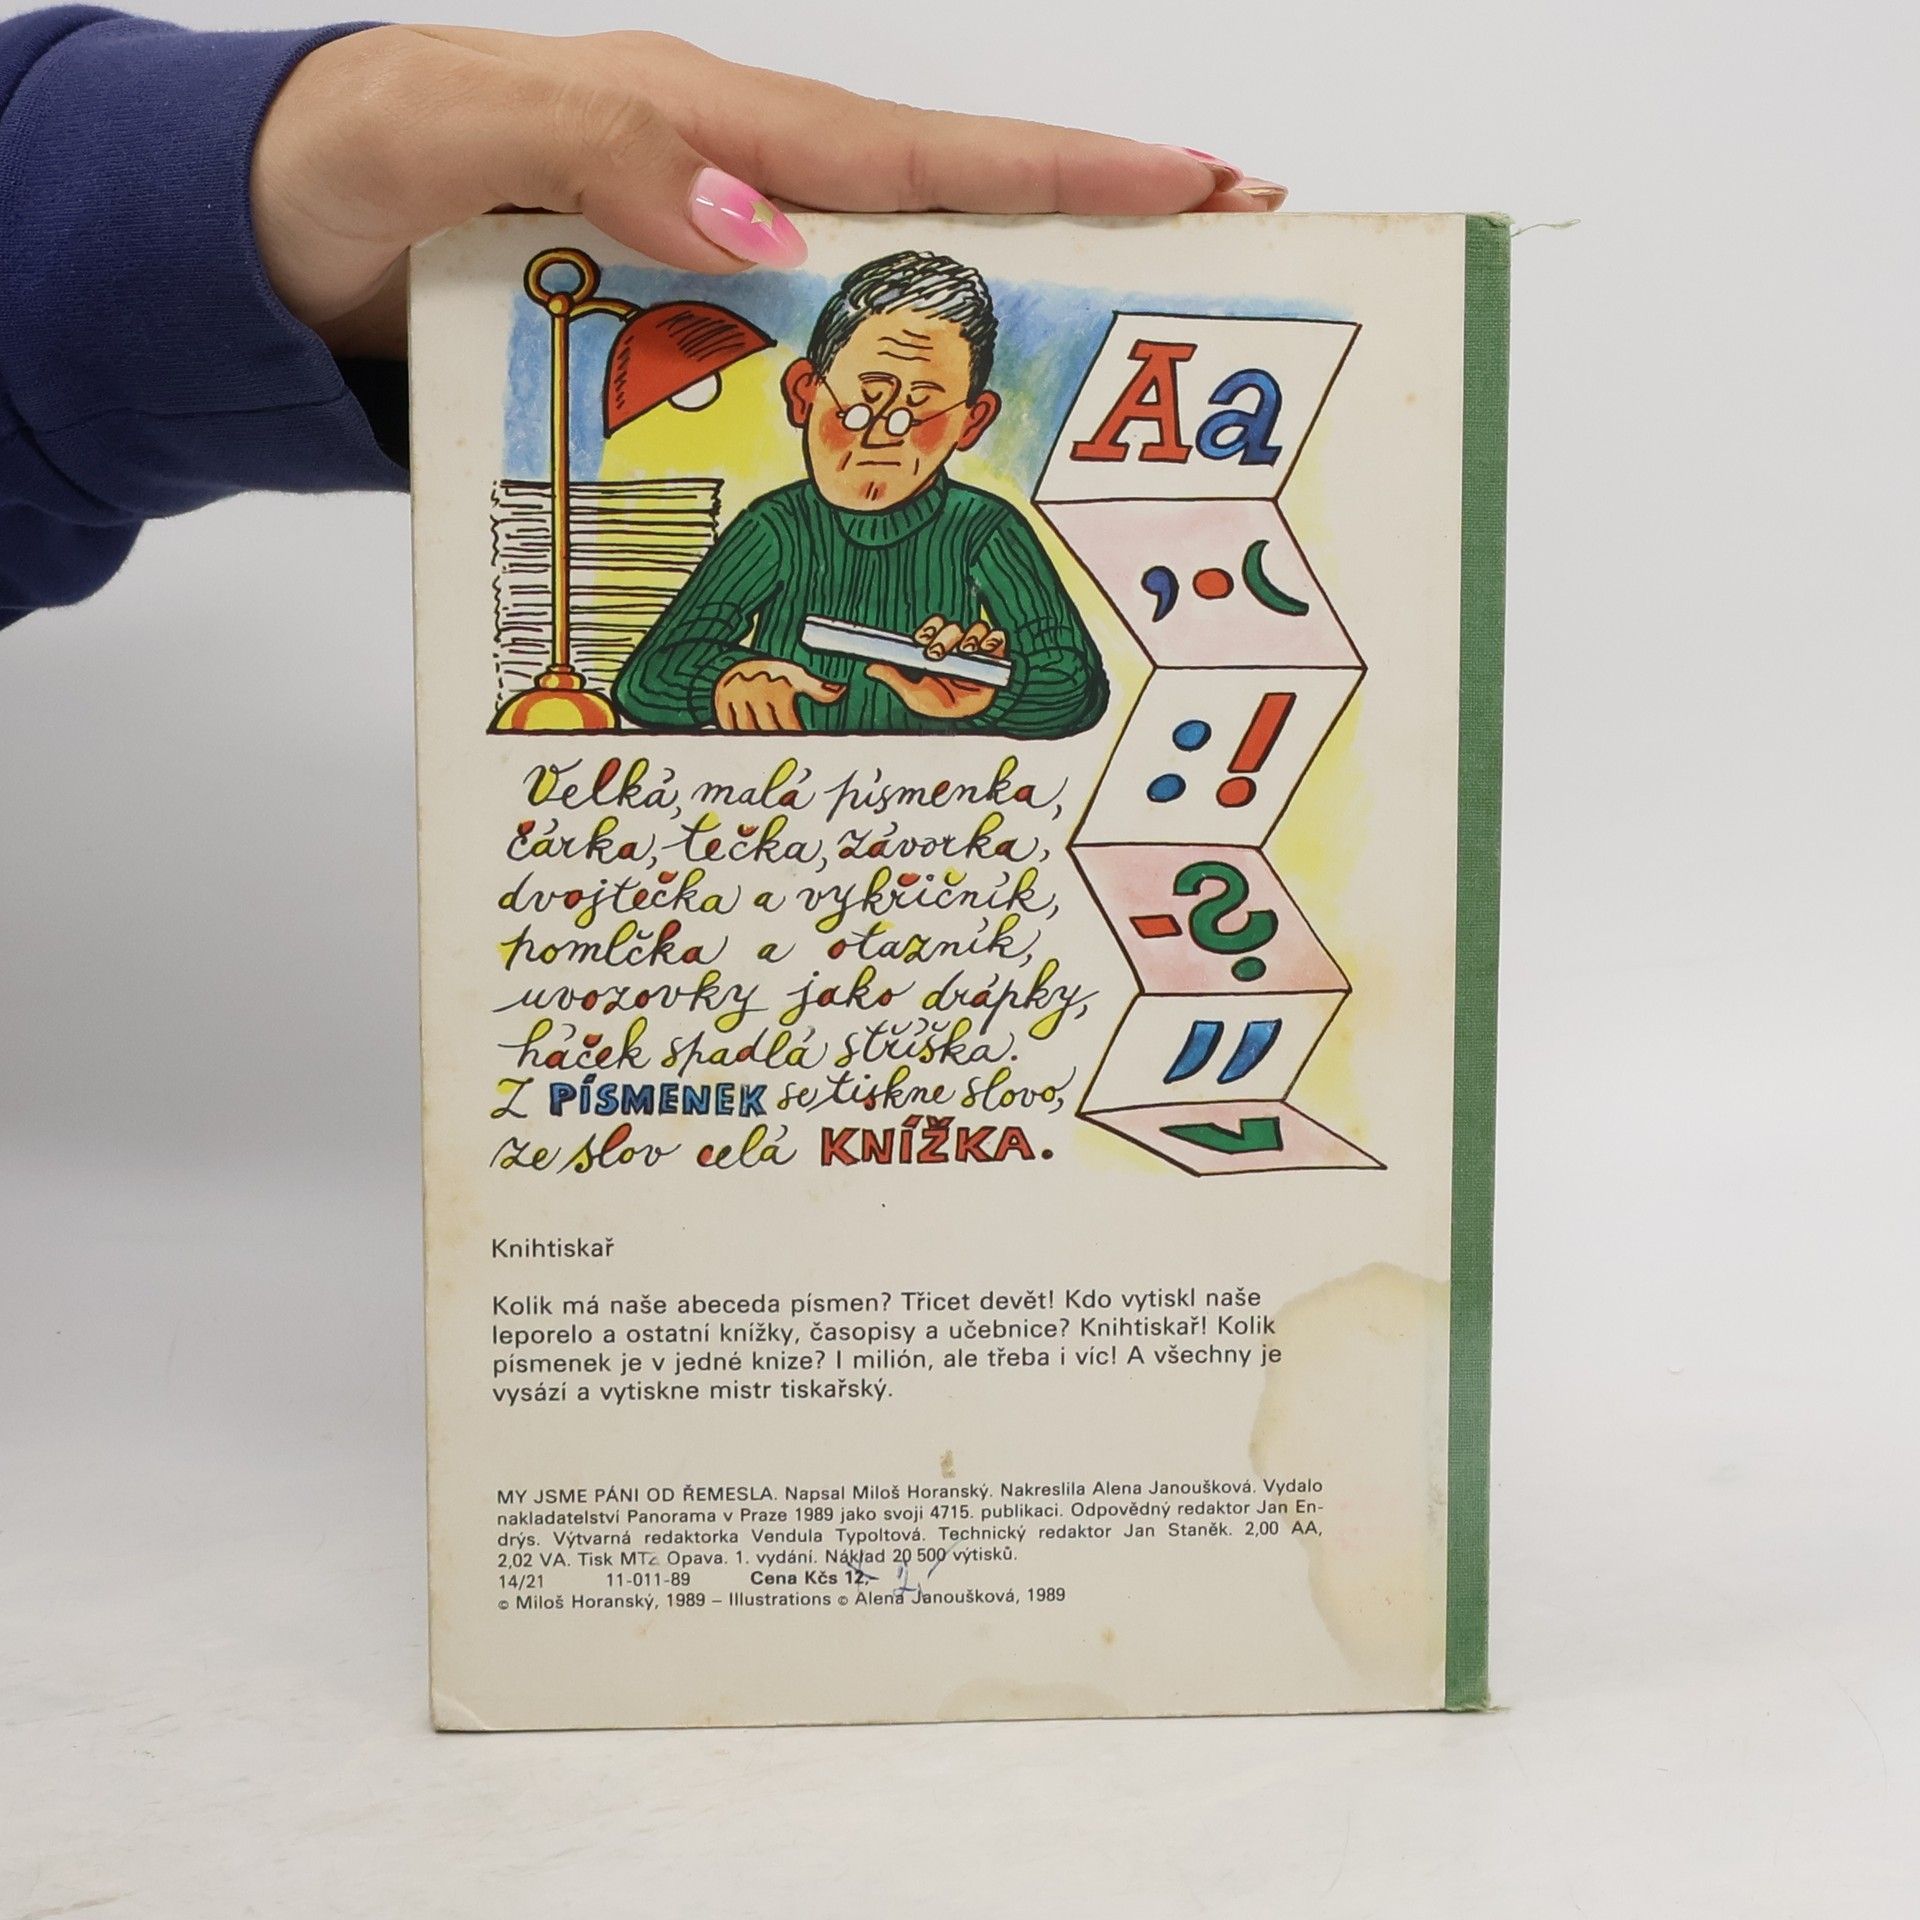 Aa
, . (
: !
- ?
"
ˇ
Velká, malá písmenka,
čárka, tečka, závorka,
dvojtečka a vykřičník,
pomlčka a otazník,
uvozovky jako drápky,
háček spadlá stříška.
Z PÍSMENEK se tiskne slovo,
ze slov celá KNÍŽKA.
Knihtiskař
Kolik má naše abeceda písmen? Třicet devět! Kdo vytiskl naše
leporelo a ostatní knížky, časopisy a učebnice? Knihtiskař! Kolik
písmenek je v jedné knize? I milión, ale třeba i víc! A všechny je
vysází a vytiskne mistr tiskařský.
MY JSME PÁNI OD ŘEMESLA. Napsal Miloš Horanský. Nakreslila Alena Janoušková. Vydalo
nakladatelství Panorama v Praze 1989 jako svoji 4715. publikaci. Odpovědný redaktor Jan En-
drýs. Výtvarná redaktorka Vendula Typoltová. Technický redaktor Jan Staněk. 2,00 AA,
2,02 VA. Tisk MTZ Opava. 1. vydání. Náklad 20 500 výtisků.
14/21 11-011-89 Cena Kčs 12,- 2,
© Miloš Horanský, 1989 – Illustrations © Alena Janoušková, 1989